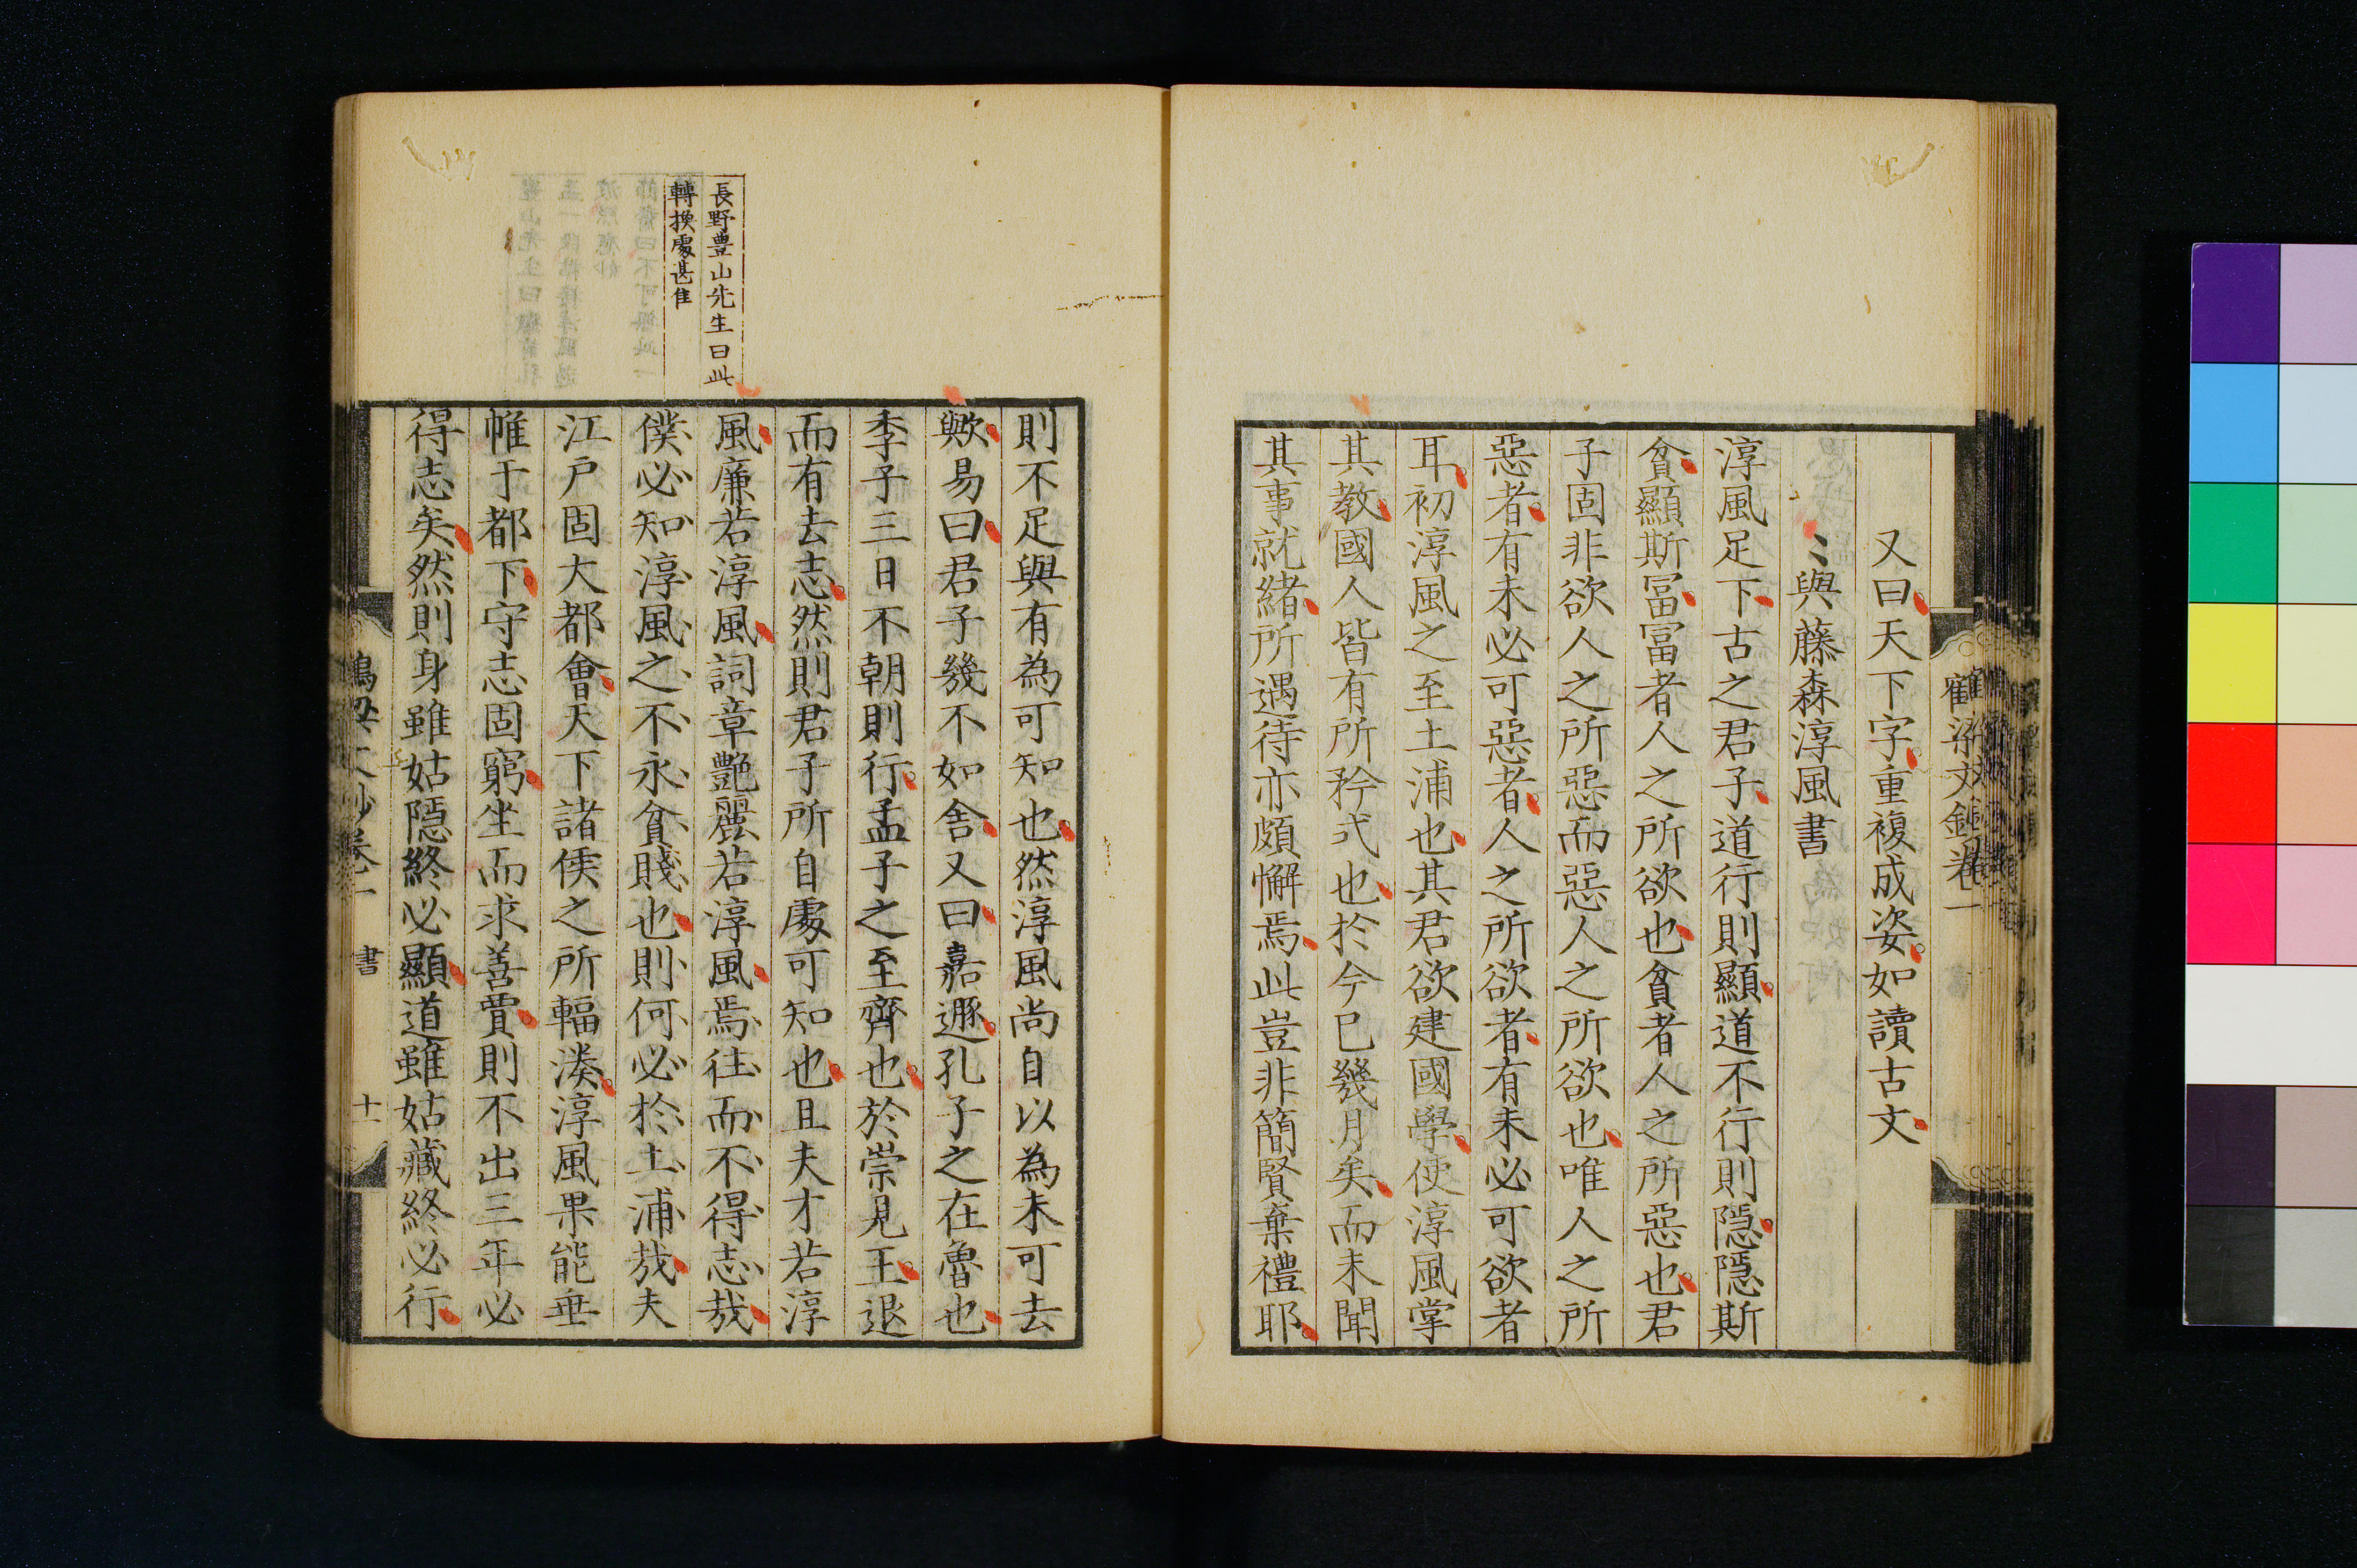 崔梁文鈔卷一
又曰天下字重複成姿如讀古文
〻與藤森淳風書
淳風足下古之君子道行則顯道不行則隱隱斯
貧顯斯冨冨者人之所欲也貧者人之所惡也君
子固非欲人之所惡而惡人之所欲也唯人之所
惡者有未必可惡者人之所欲者有未必可欲者
耳初淳風之至土浦也其君欲建國學使淳風掌
其教國人皆有所矜式也於今已幾月矣而未聞
其事就緒所遇待亦頗懈焉此豈非簡賢棄禮耶
則不足與有為可知也然淳風尚自以為未可去
歟易曰君子幾不如舍又曰嘉遯孔子之在魯也
季子三日不朝則行孟子之至齊也於崇見王退
而有去志然則君子所自處可知也且夫才若淳
風廉若淳風詞章艷麗若淳風焉往而不得志哉
僕必知淳風之不永貧賤也則何必於土浦哉夫
江戶固大都會天下諸侯之所輻湊淳風果能垂
帷于都下守志固窮坐而求善賈則不出三年必
得志矣然則身雖姑隱終必顯道雖姑藏終必行
長野豊山先生曰此
轉換處甚佳
書
十一